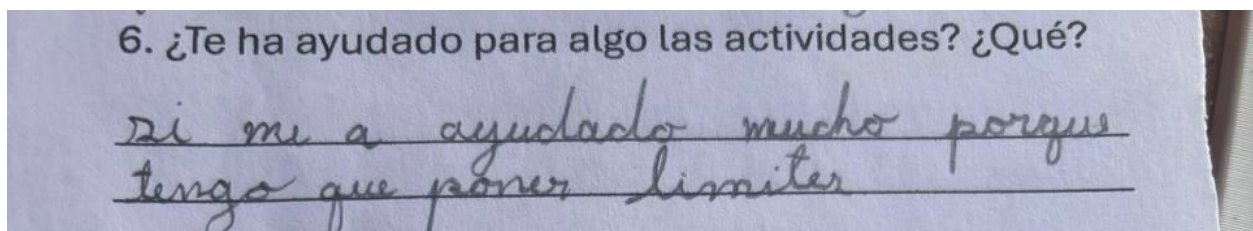 6. ¿Te ha ayudado para algo las actividades? ¿Qué?
si me a ayudado mucho porque
tengo que poner limites